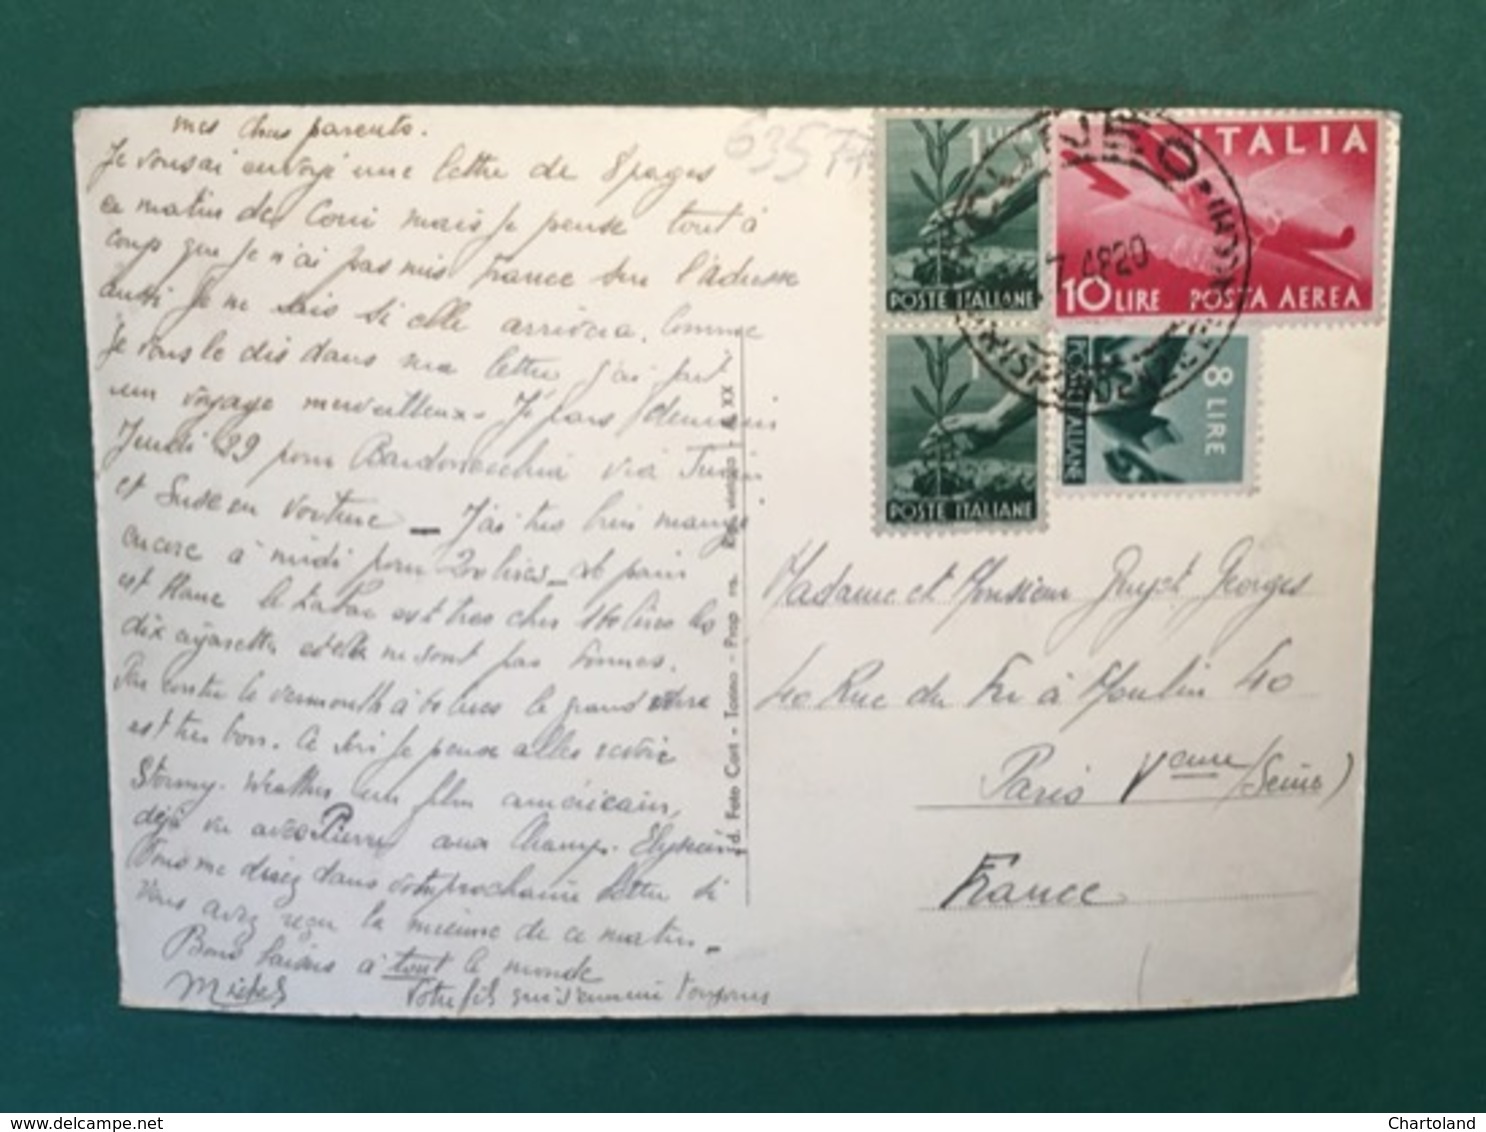 mes chers parents.
Je vous ai envoyé une lettre de 8 pages
ce matin de Coni mais je pense tout à
coup que je n'ai pas mis France sur l'adresse
aussi je ne sais si elle arrivera. Comme
je vous le dis dans ma lettre j'ai fait
un voyage merveilleux. Je pars demain
Jeudi 29 pour Bardonecchia via Turin
et Suse en voiture — J'ai très bien mangé
encore à midi pour 200 lires — le pain
est blanc le tabac est très cher 160 lires les
dix cigarettes et elles ne sont pas bonnes.
Par contre le vermouth à 40 lires le grand verre
est très bon. Ce soir je pense aller revoir
Stormy. Weather un film américain,
déjà vu avec Pierre aux Champs. Elyséens
Vous me direz dans votre prochaine lettre si
vous avez reçu la mienne de ce matin —
Bons baisers à tout le monde
Michel votre fils qui s'ennuie toujours
635
1 LIRA
POSTE ITALIANE
1
POSTE ITALIANE
ITALIA
10 LIRE POSTA AEREA
8 LIRE
ITALIANE
CUNEO
Ed. Foto Cart - Torino - Prop ris.
XX
Madame et Monsieur Guyot Georges
40 Rue du Fer à Moulin 40
Paris Vème (Seine)
France
Chartoland
www.delcampe.net